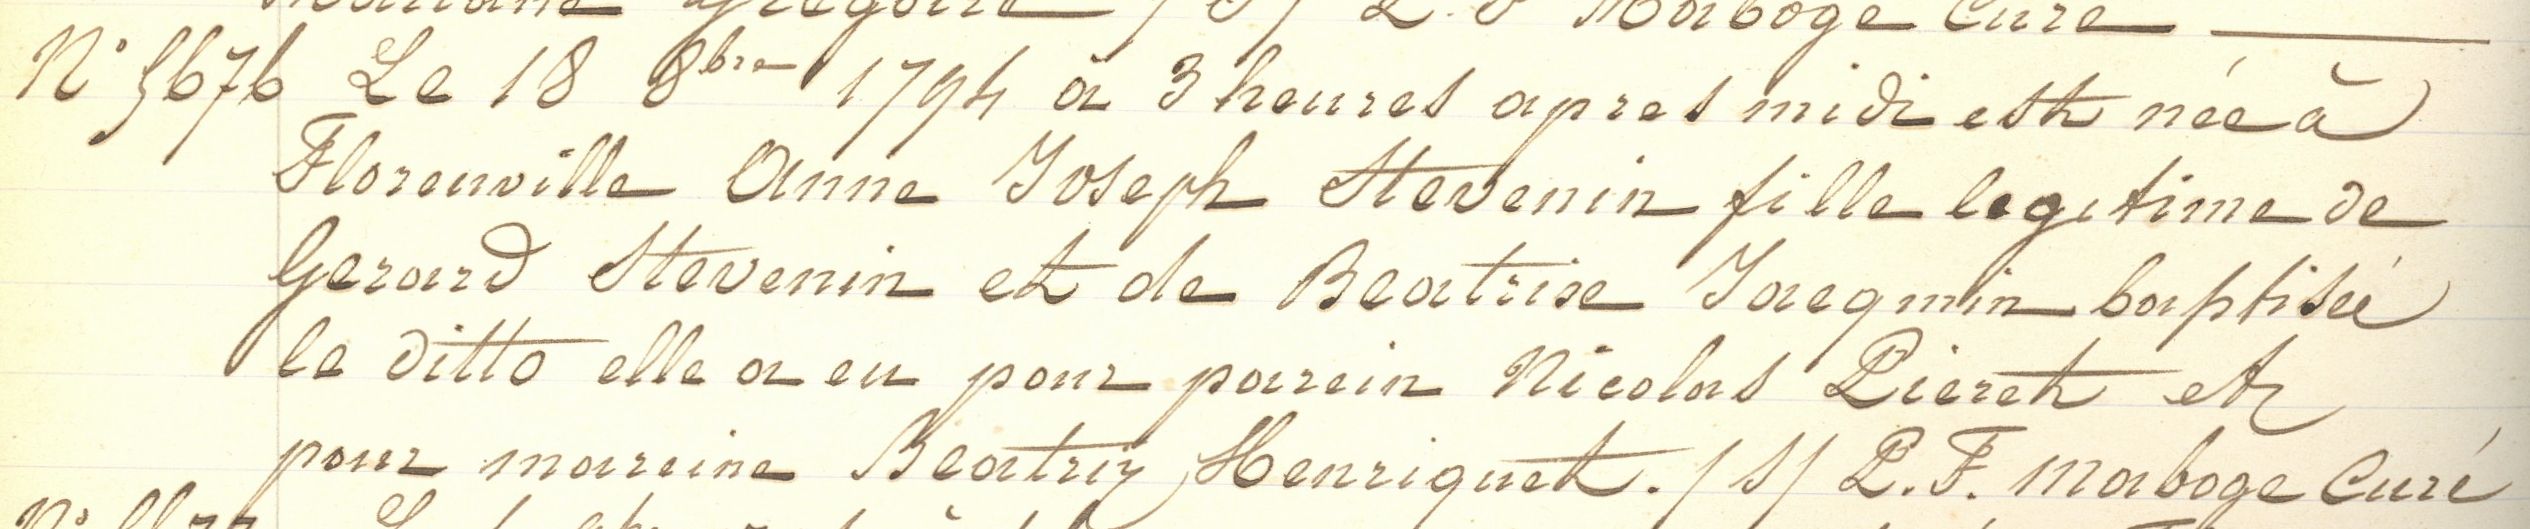 Marianne Gregoire /S/ P. F Maboge Curé
N° 5676 Le 18 8bre 1794 à 3 heures apres midi est née à
Florenville Anne Joseph Stevenin fille legitime de
Gerard Stevenin et de Beatrise Jaegmin baptisée
le ditto elle a eu pour parein Nicolas Pieret et
pour mareine Beatrix Henriquet. /S/ P. F. Maboge Curé